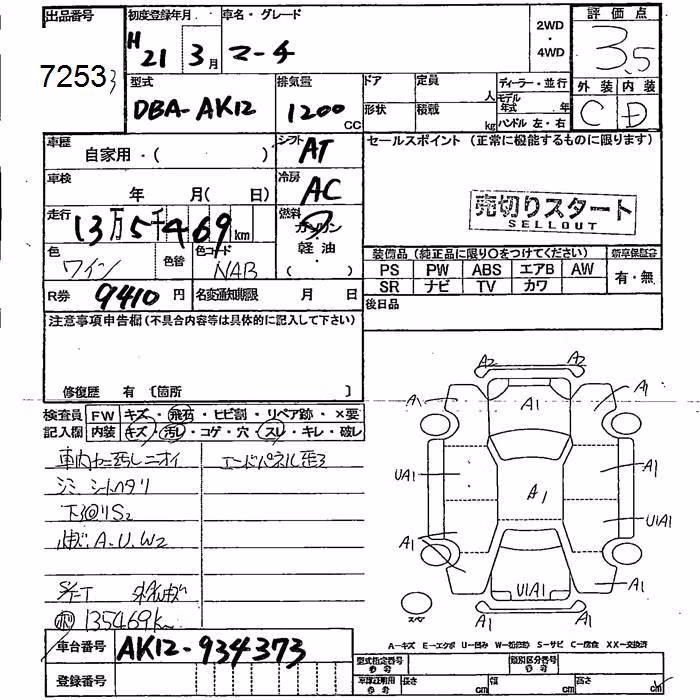 出品番号 初度登録年月 車名・グレード 2WD・4WD 評価点
7253 H21 3月 マーチ 3.5
型式 排気量 ドア 定員 人 ディーラー・並行 外装 内装
DBA-AK12 1200CC 形状 積載 kg モデル年式 年 C D
ハンドル 左・右
車歴 シフト セールスポイント (正常に機能するものに限ります)
自家用・( ) AT
車検 冷房
年 月( 日) AC
売切りスタート
SELLOUT
走行 燃料
13万5千469km ガソリン
軽・油
( )
色 色替 色コード
ワイン NAB
装備品(純正品に限り○をつけてください) 新車保証書
PS PW ABS エアB AW 有・無
SR ナビ TV カワ
R券 9410円 名変通知期限 月 日 後日品
注意事項申告欄(不具合内容等は具体的に記入して下さい)
修復歴 有 〔箇所 〕
検査員 FW キズ・飛石・ヒビ割・リペア跡・×要
記入欄 内装 キズ・汚れ・コゲ・穴・スレ・キレ・破レ
車内ヤニ汚レニオイ エンドパネル歪ミ
シミ シートヘタリ
下回リS2
A.U.W2
S/F-T
135469km
A2 A2
A1 A1 A1
UA1 A1 A1
A1 U1A1
U1A1 A1
A1
スペア
A-キズ E-エクボ U-凹み W-補修跡 S-サビ C-腐食 XX-交換済
車台番号 AK12-934373
型式指定番号 類別区分番号
登録番号 長さ cm 幅 cm 高さ cm